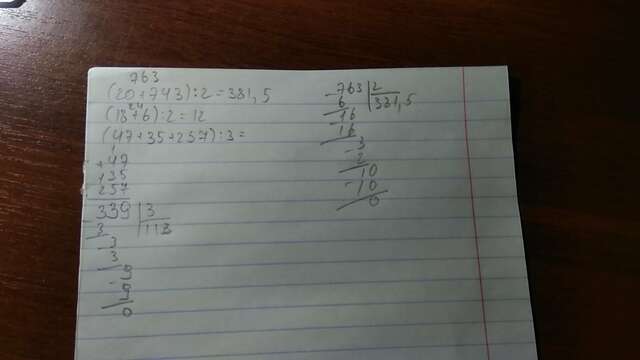 763
(20+743):2=381,5
24
(18+6):2=12
(47+35+257):3=
1
+47
+35
257
339 3
3 113
3
3
9
9
0
-763 2
6 381,5
-16
16
-3
2
10
-10
0